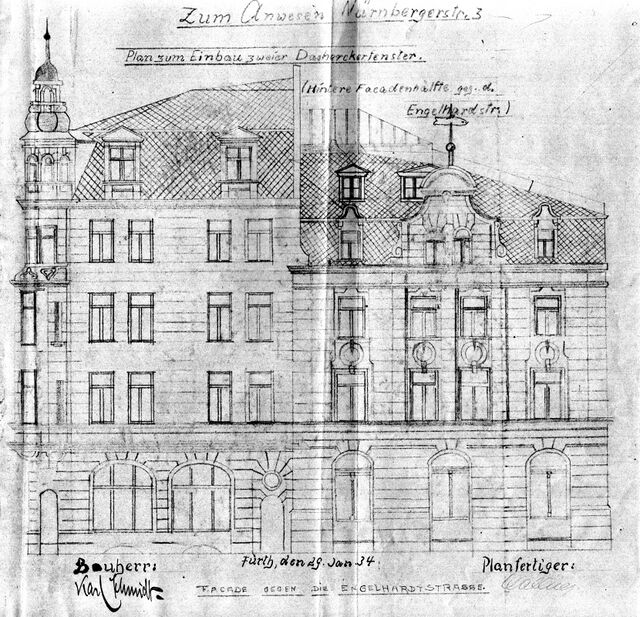 Zum Anwesen Nürnbergerstr. 3
Plan zum Einbau zweier Dacherckerfenster.
(Hintere Facadenhälfte geg. d.
Engelhardstr.)
Bauherr:
Fürth, den 29. Jan 34.
Planfertiger:
Karl Schmidt
FACADE GEGEN DIE ENGELHARDTSTRASSE.